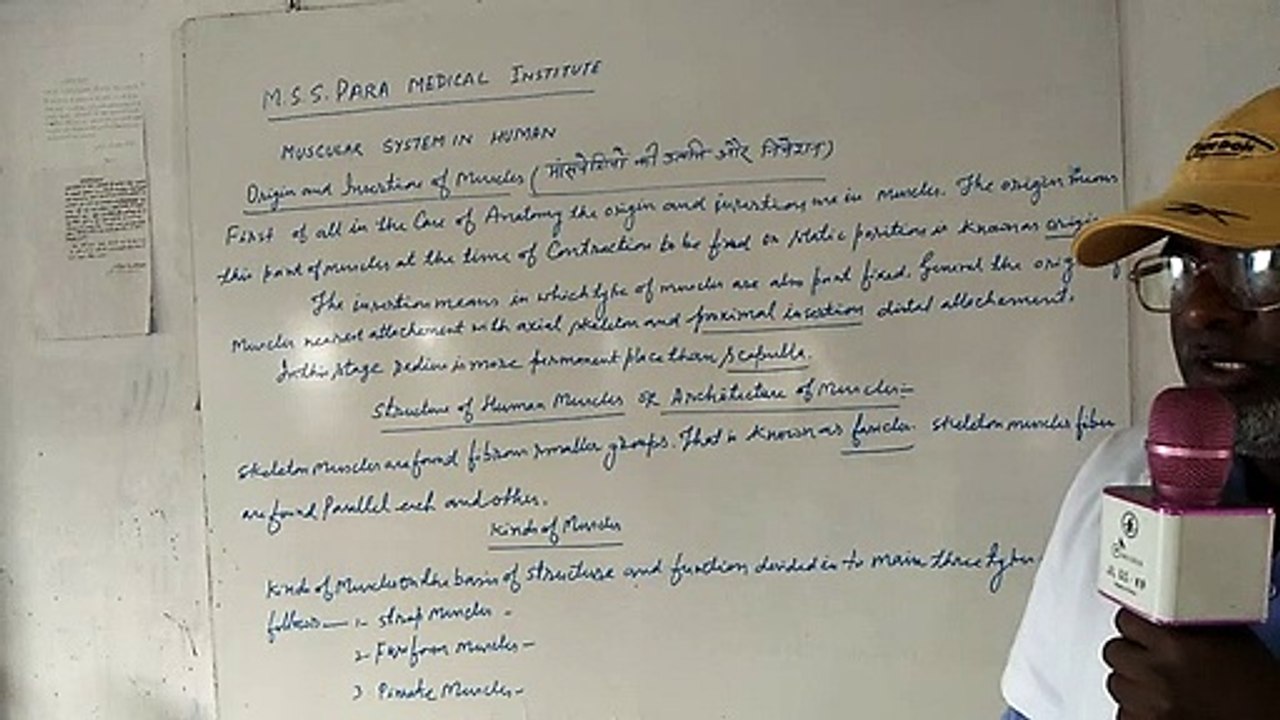 M.S.S. PARA MEDICAL INSTITUTE
MUSCULAR SYSTEM IN HUMAN
Origin and Insertion of Muscles (मांसपेशियों की उत्पत्ति और निवेशन)
First of all in the Case of Anatomy the origin and insertion are in muscles. The origin means
this part of muscles at the time of Contraction to be fixed or static position is known as
The insertion means in which type of muscles are also part fixed. General the
Muscles nearest attachement with axial skeleton and proximal insertion distal attachement.
In this stage redius is more permanent place than scapulla.
Structure of Human Muscles or Architecture of Muscles:-
Skeleton Muscles are found fibrous smaller groups. That is known as skeleton muscles fiber
are found Parallel each and other.
Kinds of Muscles
Kinds of Muscles on the basis of structure and function divided in to main three types
follows — 1- Strap Muscles -
2- Fusiform Muscles -
3 Pinnate Muscles -